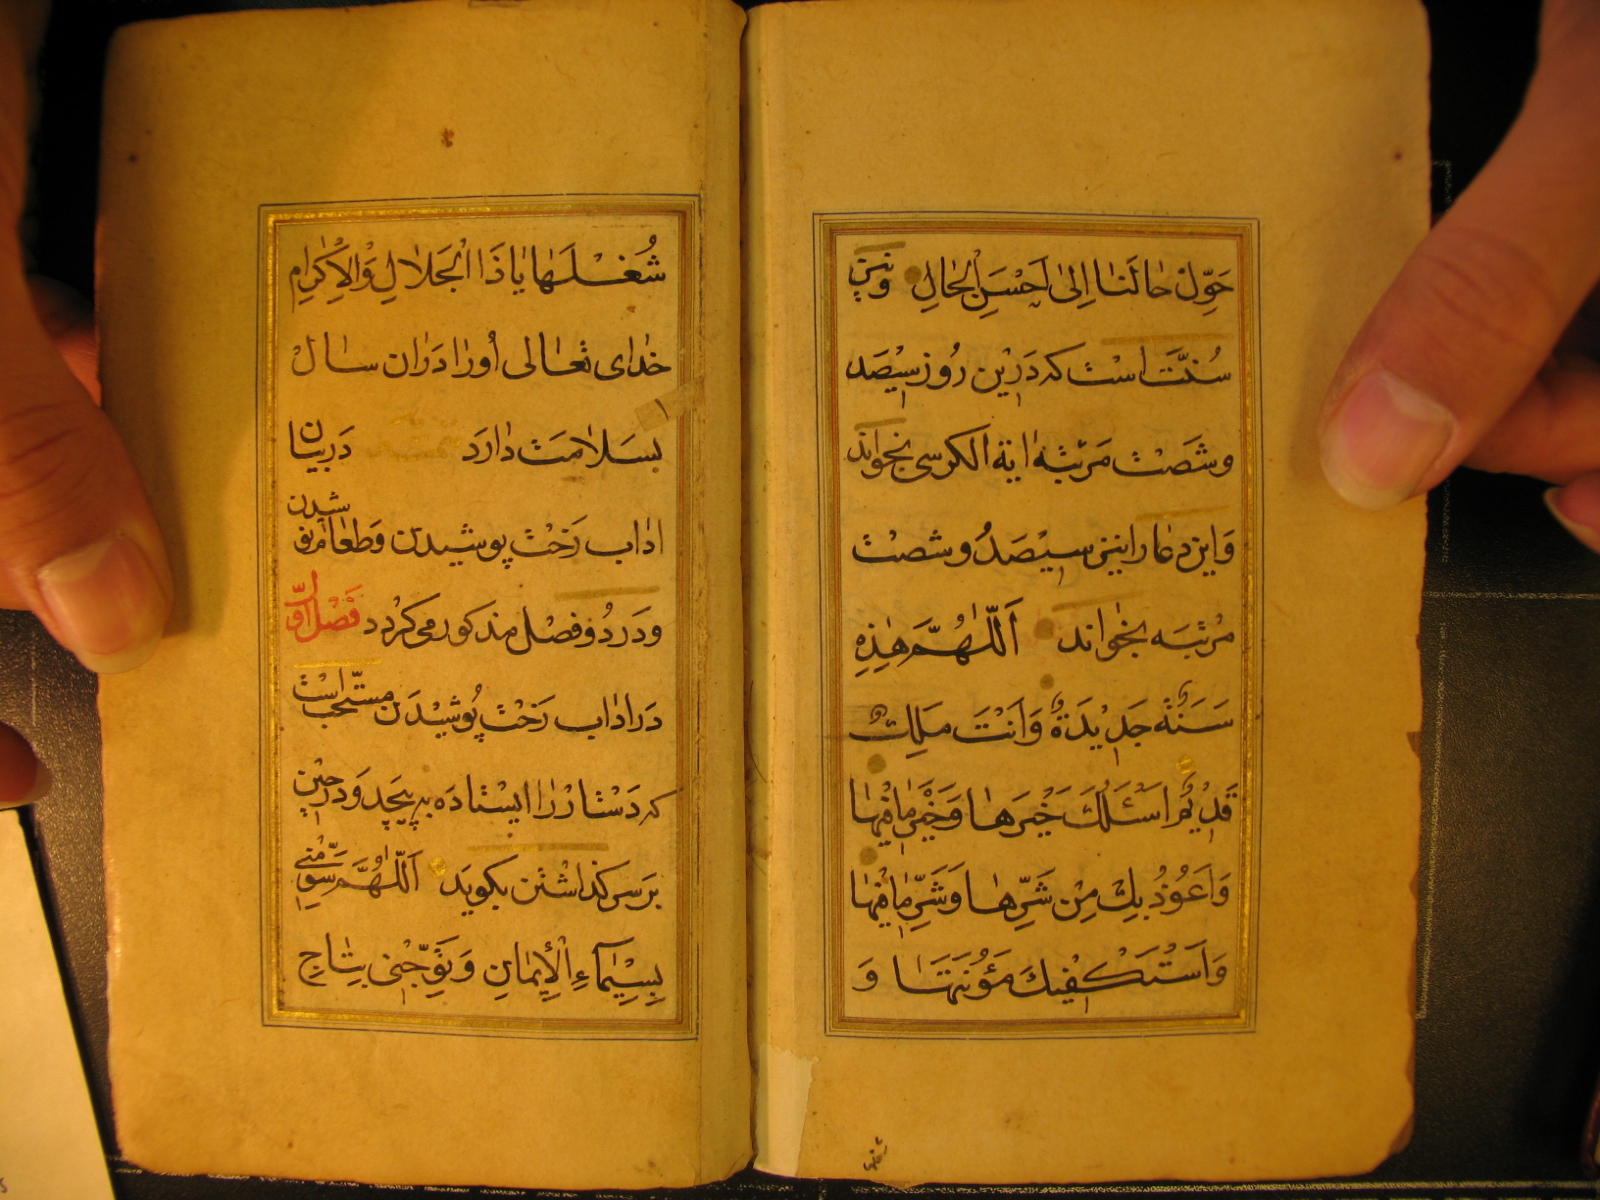 حَوِّلْ حٰالَنٰا اِلىٰ اَحْسَنِ الْحٰالِ ونیز
سُنَّتَ اسْت كه دَرْاین رُوز سیْصَد
و شَصْتْ مَرْتبْه اٰیة الكرسى بخوٰاند
وَاین دعٰا را نیز سیْصَدُ و شصتْ
مرْتبَه بخوٰاند اَللّٰهُمَّ هٰذِهِ
سَنَةٌ جَدیٖدَةٌ وَاَنْتَ مَلِكٌ
قَدیٖمٌ اَسْئَلُكَ خَیْرَهٰا وَخَیْرَ مٰا فیٖهٰا
وَاَعُوذُ بِكَ مِنْ شَرِّهٰا وَشَرِّ مٰا فیٖهٰا
وَاَسْتَكْفیٖكَ مَؤُنَتَهٰا وَ
شغلها
شُغْلَهٰا یٰا ذَا الْجَلاٰلِ وَالْاِكْرٰامِ
خدٰاى تعٰالى اُورٰا دَرٰان سٰالْ
بسَلاٰمَتْ دٰارَد دَر بیٰان
اداٰب رَخْتْ پوشیدن وَطعٰام
شدن
ودَر دُو فصْل مذكور مى كرْدد فَصْل اوّل
دَر اداٰب رَخْتْ پُوشیْدَن مستّحب است
كه دَسْتٰارْ رٰا ایسْتٰادَه به پیچد وَدر حین
بَر سر كذاشْتن بكوید اَللّٰهُمَّ سَوِّمْنى
بِسیٖمٰآءِ الْاِیمٰانِ وَتَوِّجْنى بِتٰاجِ